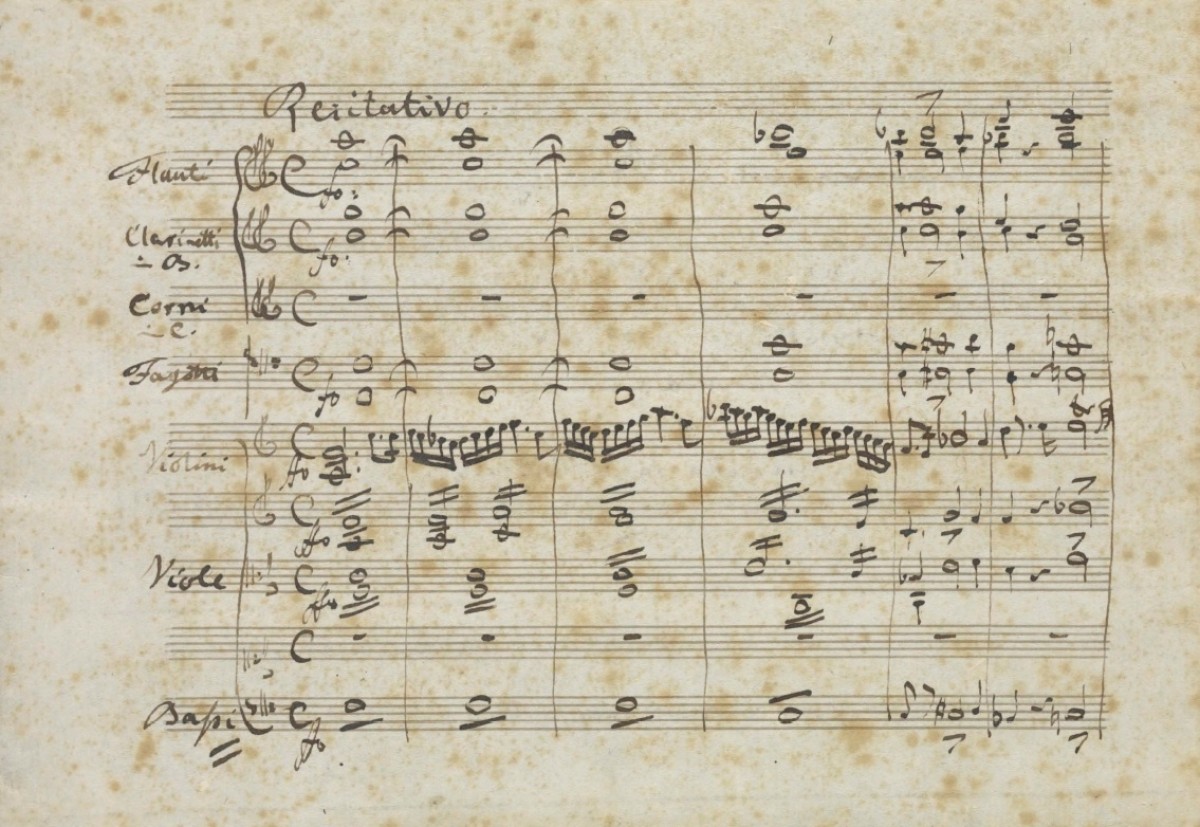 Recitativo.
Flauti
fo:
Clarinetti
in B.
fo:
Corni
in C.
Fagotti
fo
Violini
fo
fo
Viole
fo
Bassi
fo